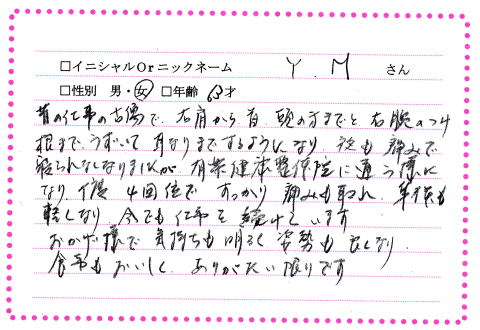 □イニシャルOrニックネーム Y.M さん
□性別 男・女 □年齢 63才
昔の仕事の古傷で、右肩から首、頭の方までと右腕のつけ
根まで、うずいて耳なりまでするようになり、夜も痛みで
寝られなくなりましたが 有楽健康整体院に通う様に
なり 僅 4回位で すっかり 痛みも取れ、身体も
軽くなり 今でも仕事を続けています
おかげ様で 気持ちも明るく 姿勢も良くなり、
食事もおいしく、ありがたい限りです